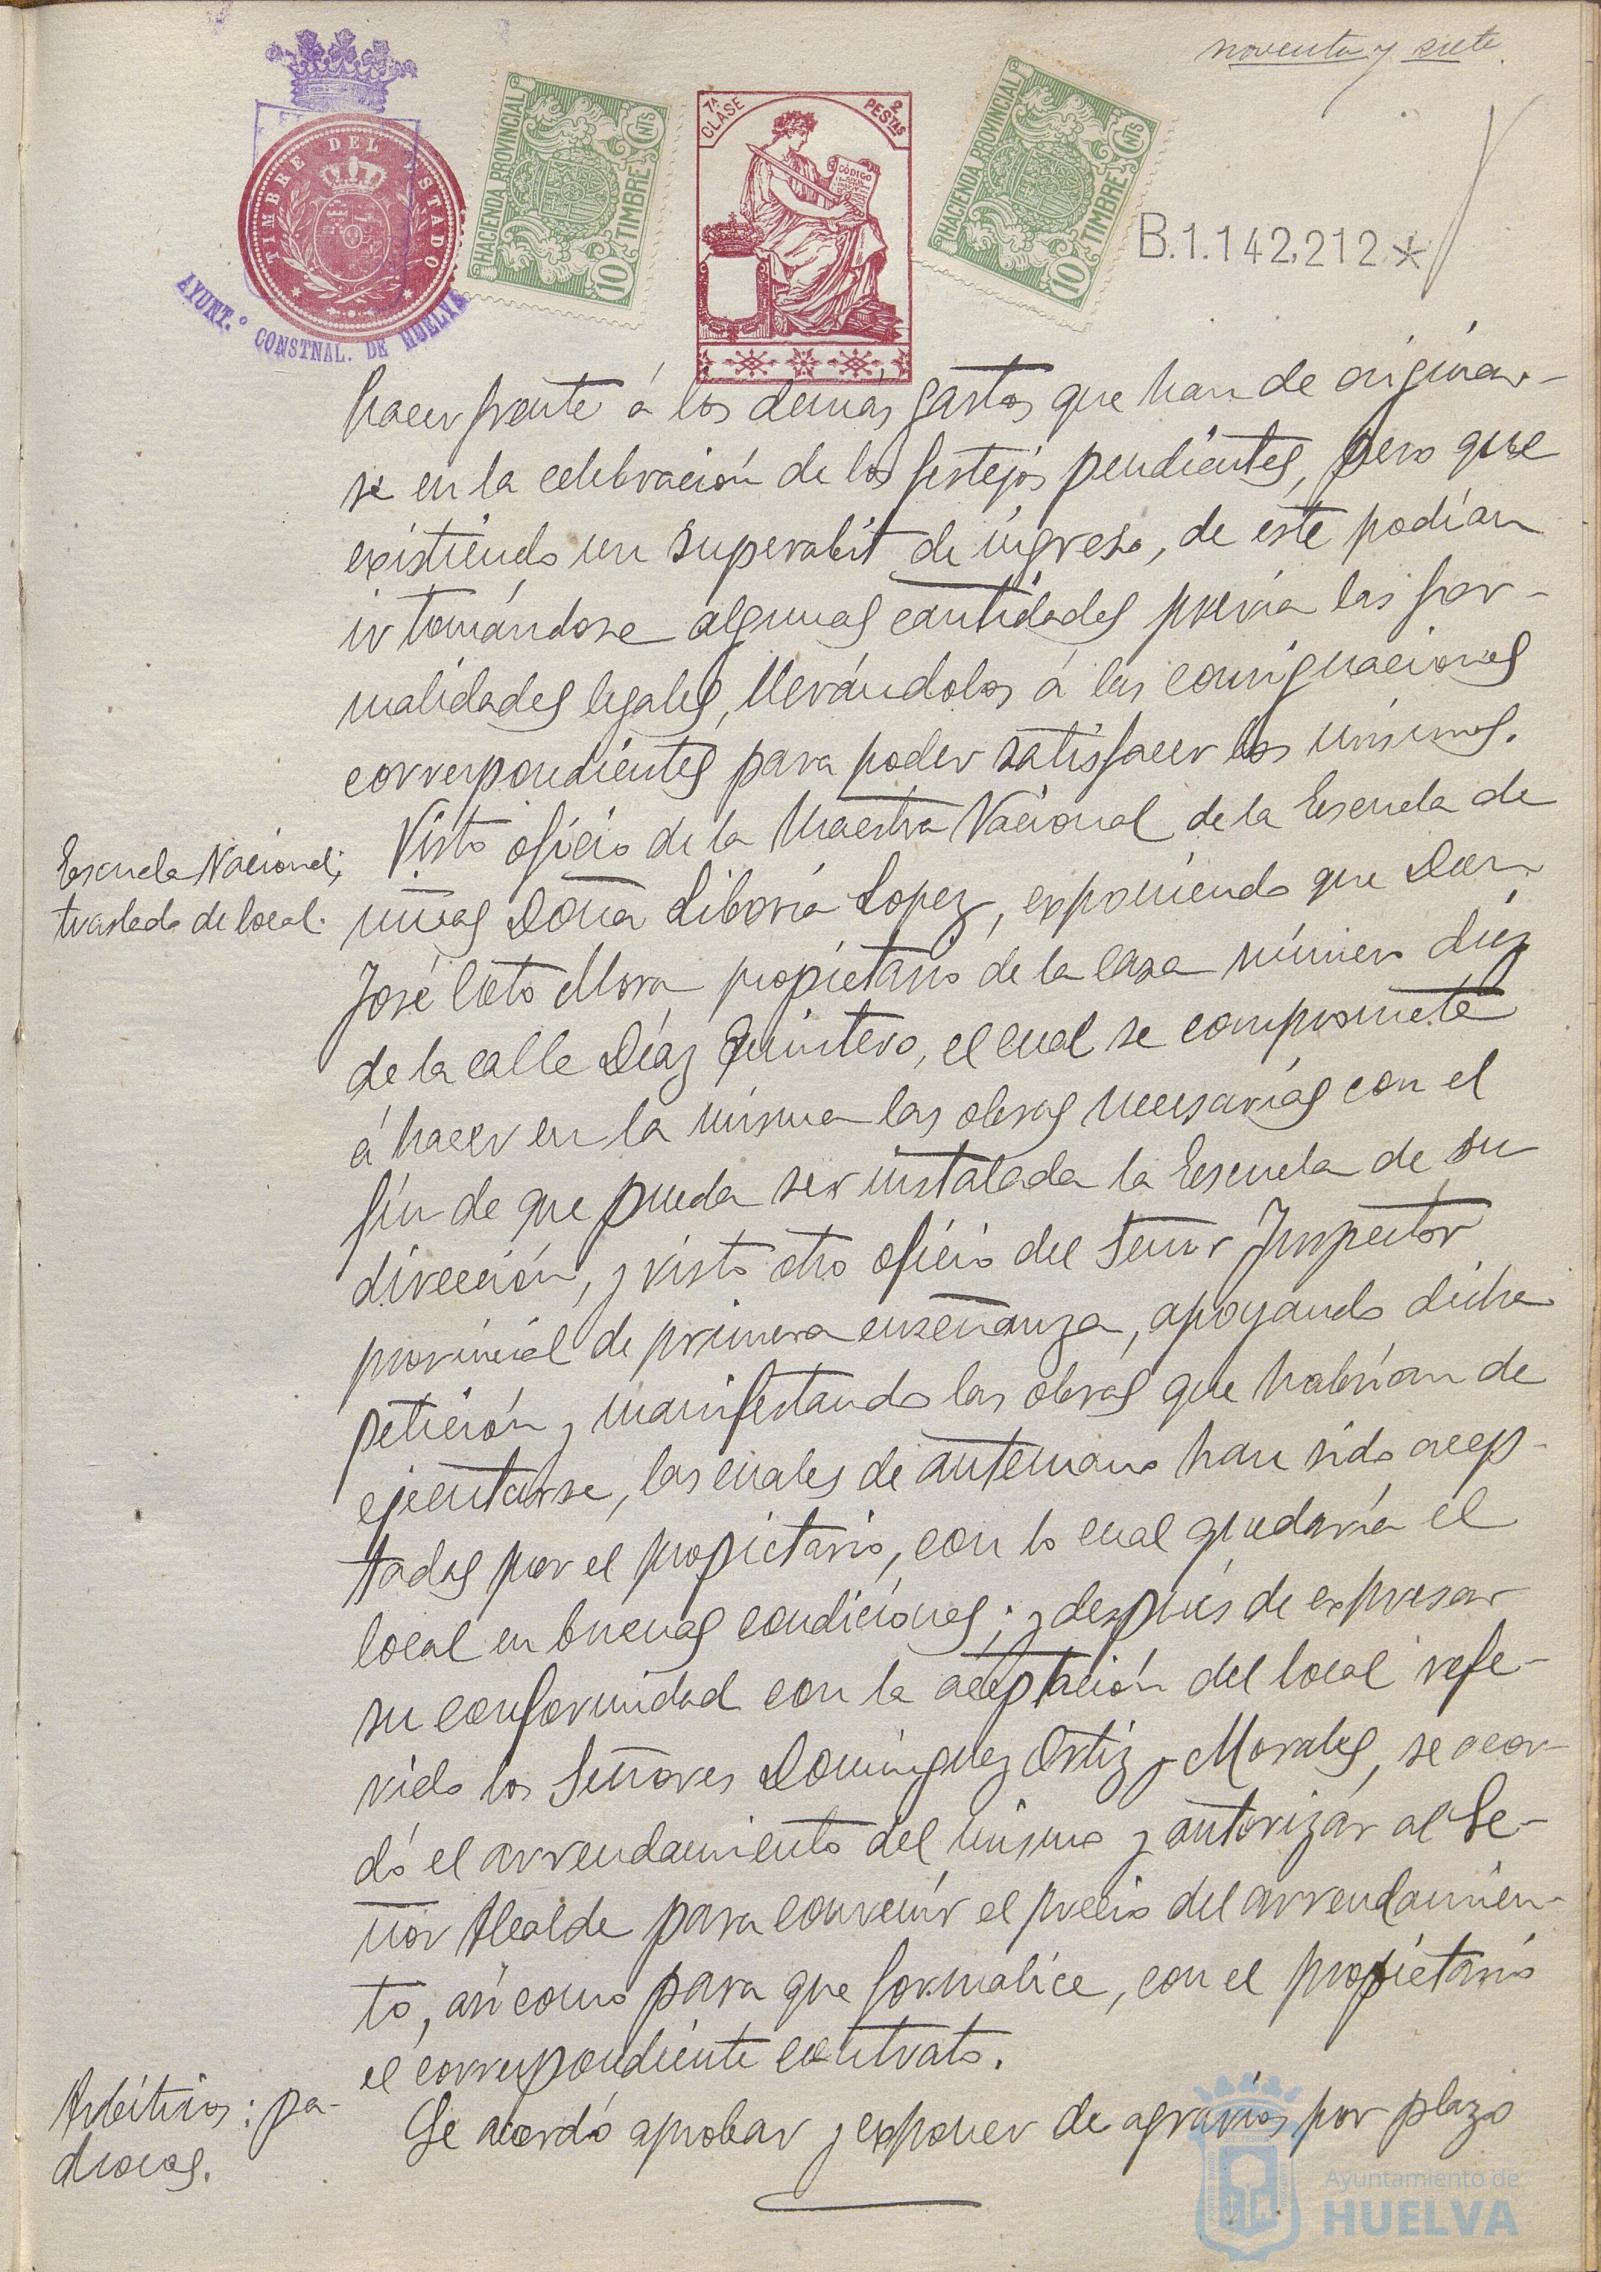 noventa y siete.
TIMBRE DEL ESTADO
AYUNT.º CONSTNAL. DE HUELVA
HACIENDA PROVINCIAL
10 CNTS TIMBRE
7ª CLASE
2 PESTAS
CÓDIGO
HACIENDA PROVINCIAL
10 CNTS TIMBRE
B.1.142,212*
hacer frente á los demás gastos que han de originar-
se en la celebración de los festejos pendientes, pero que
existiendo un superabit de ingreso, de éste podían
ir tomándose algunas cantidades previa las for-
malidades legales, llevándolas á las consignaciones
correspondientes para poder satisfacer los mismos.
Escuela Nacional;
traslado de local.
Visto oficio de la Maestra Nacional de la Escuela de
niñas Doña Liboria Lopez, exponiendo que Don
José Coto Mora propietario de la casa número diez
de la calle Díaz Quintero, el cual se compromete
á hacer en la misma las obras necesarias con el
fin de que pueda ser instalada la Escuela de su
dirección, y visto otro oficio del Señor Inspector
provincial de primera enseñanza, apoyando dicha
petición y manifestando las obras que habrían de
ejecutarse, las cuales de antemano han sido acep-
tadas por el propietario, con lo cual quedaría el
local en buenas condiciones; y después de expresar
su conformidad con la aceptación del local refe-
rido los Señores Dominguez Ortiz y Morales, se acor-
dó el arrendamiento del mismo y autorizar al Se-
ñor Alcalde para convenir el precio del arrendamien-
to, así como para que formalice, con el propietario
el correspondiente contrato.
Arbitrios: pa-
drones.
Se acordó aprobar y exponer de agravios por plazo
Ayuntamiento de
HUELVA